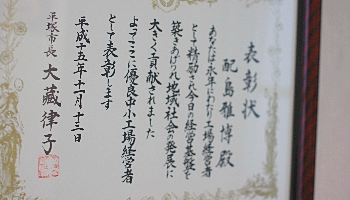 表彰状
配島雅博殿
あなたは永年にわたり工場経営者
として精励され今日の経営基盤を
築きあげられ地域社会の発展に
大きく貢献されました
よってここに優良中小工場経営者
として表彰します
平成十五年十一月十三日
平塚市長 大藏律子